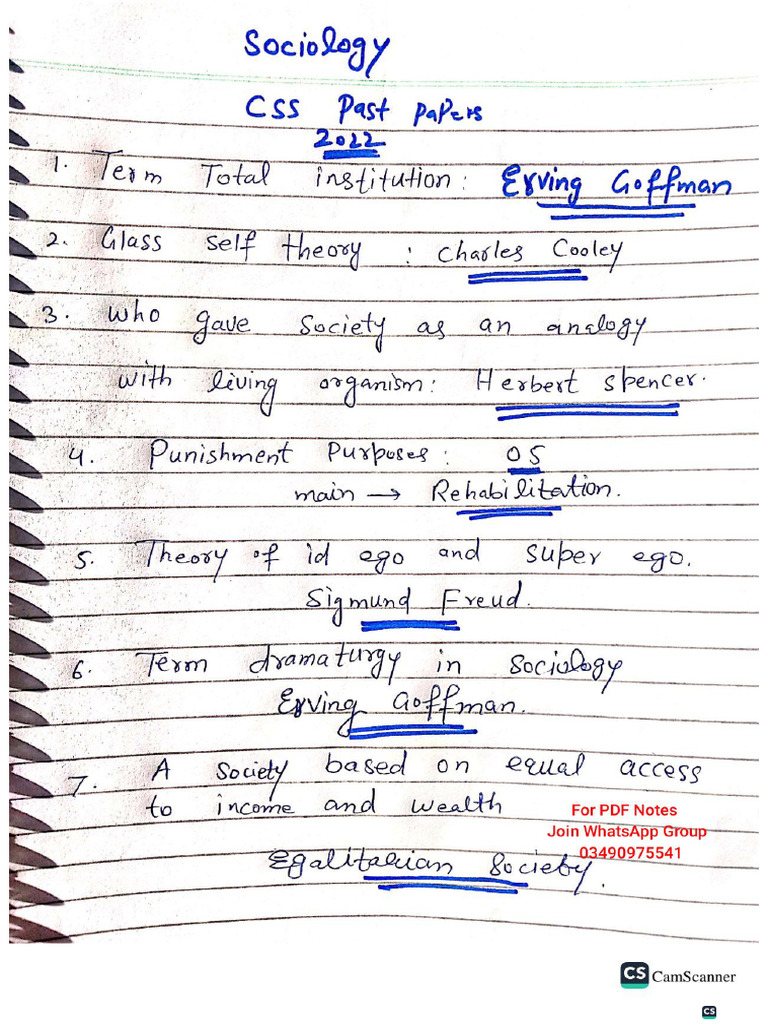 Sociology
CSS Past Papers
2022
1. Term Total institution: Erving Goffman
2. Glass self theory : Charles Cooley
3. Who gave Society as an analogy
with living organism: Herbert Spencer.
4. Punishment Purposes: 05
main → Rehabilitation.
5. Theory of id ego and super ego.
Sigmund Freud.
6. Term dramaturgy in Sociology
Erving Goffman.
7. A Society based on equal access
to income and wealth
For PDF Notes
Join WhatsApp Group
03490975541
Egalitarian Society.
CS CamScanner
CS